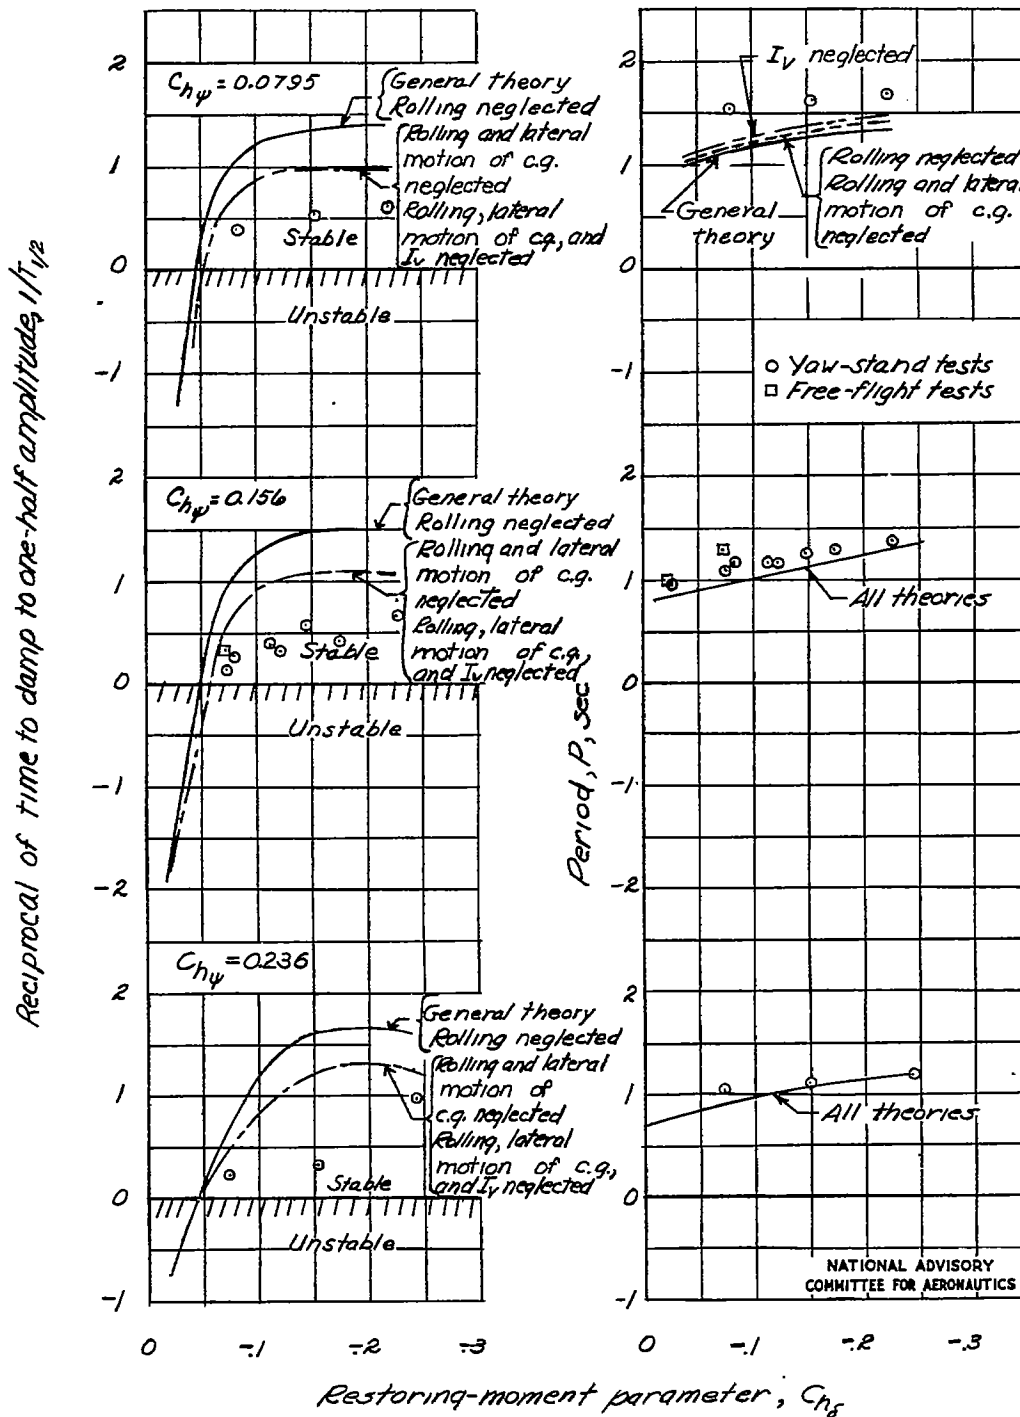 Reciprocal of time to damp to one-half amplitude, 1/T1/2
2
1
0
-1
Chψ = 0.0795
General theory
Rolling neglected
Rolling and lateral
motion of c.g.
neglected
Rolling, lateral
motion of c.g., and
Iv neglected
Stable
Unstable
2
1
0
-1
-2
Chψ = 0.156
General theory
Rolling neglected
Rolling and lateral
motion of c.g.
neglected
Rolling, lateral
motion of c.g.,
and Iv neglected
Stable
Unstable
2
1
0
-1
Chψ = 0.236
General theory
Rolling neglected
Rolling and lateral
motion of
c.g. neglected
Rolling, lateral
motion of c.g.,
and Iv neglected
Stable
Unstable
0 -.1 -.2 -.3
Period, P, sec
2
1
0
-1
Iv neglected
General
theory
Rolling neglected
Rolling and lateral
motion of c.g.
neglected
Yaw-stand tests
Free-flight tests
2
1
0
-1
-2
All theories
2
1
0
-1
All theories
NATIONAL ADVISORY
COMMITTEE FOR AERONAUTICS
0 -.1 -.2 -.3
Restoring-moment parameter, Chδ